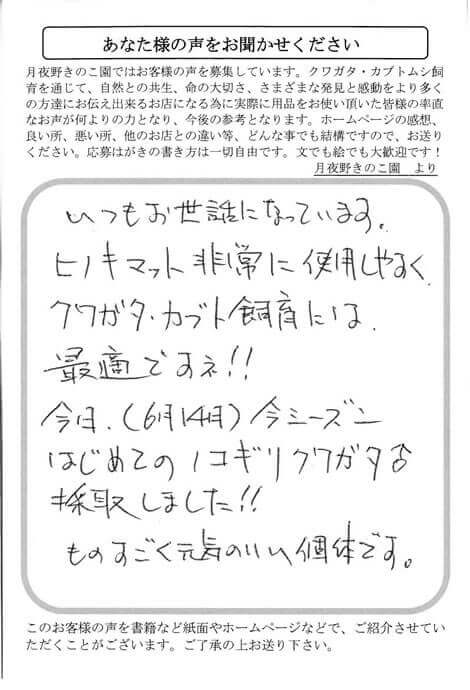 あなた様の声をお聞かせください
月夜野きのこ園ではお客様の声を募集しています。クワガタ・カブトムシ飼
育を通じて、自然との共生、命の大切さ、さまざまな発見と感動をより多く
の方達にお伝え出来るお店になる為に実際に用品をお使い頂いた皆様の率直
なお声が何よりの力となり、今後の参考となります。ホームページの感想、
良い所、悪い所、他のお店との違い等、どんな事でも結構ですので、お送り
ください。応募はがきの書き方は一切自由です。文でも絵でも大歓迎です！
月夜野きのこ園　より
いつもお世話になっています。
ヒノキマット非常に使用しやすく
クワガタ・カブト飼育には、
最適ですネ!!
今日、(6月14日)今シーズン
はじめてのノコギリクワガタ♂
採取しました!!
ものすごく元気のいい個体です。
このお客様の声を書籍など紙面やホームページなどで、ご紹介させてい
ただくことがございます。ご了承の上お送り下さい。